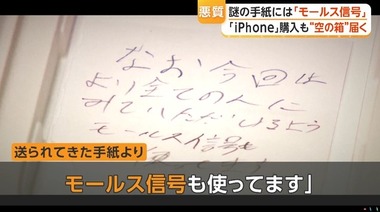 悪質
謎の手紙には「モールス信号」
「iPhone」購入も“空の箱”届く
なお今回は
より全ての人に
みていただけるよう
モールス信号も
送られてきた手紙より
モールス信号も使ってます」